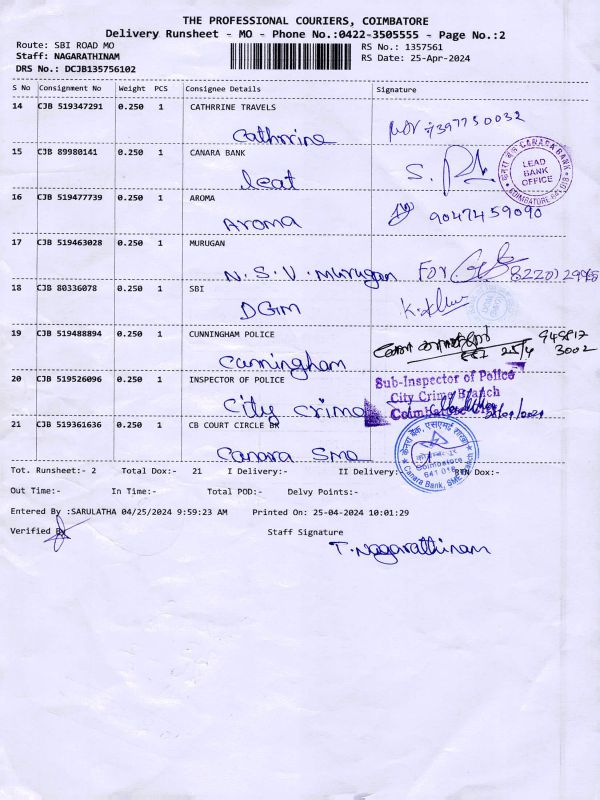 THE PROFESSIONAL COURIERS, COIMBATORE
Delivery Runsheet - MO - Phone No.:0422-3505555 - Page No.:2
Route: SBI ROAD MO
Staff: NAGARATHINAM
DRS No.: DCJB135756102
RS No.: 1357561
RS Date: 25-Apr-2024
S No Consignment No Weight PCS Consignee Details Signature
14 CJB 519347291 0.250 1 CATHRRINE TRAVELS
Cathrrine
15 CJB 89980141 0.250 1 CANARA BANK
leat
CANARA BANK
LEAD
BANK
OFFICE
COIMBATORE 641 018
16 CJB 519477739 0.250 1 AROMA
Aroma 9047459090
17 CJB 519463028 0.250 1 MURUGAN
N.S.V. Murugan For
18 CJB 80336078 0.250 1 SBI
DGM
19 CJB 519488894 0.250 1 CUNNINGHAM POLICE
Cunningham 25/4 3002
20 CJB 519526096 0.250 1 INSPECTOR OF POLICE
City Crime
Sub-Inspector of Police
City Crime Branch
21 CJB 519361636 0.250 1 CB COURT CIRCLE BR
Canara Sme
Coimbatore
641 018
Canara Bank, SME Branch
Tot. Runsheet:- 2 Total Dox:- 21 I Delivery:- II Delivery:- RTN Dox:-
Out Time:- In Time:- Total POD:- Delvy Points:-
Entered By :SARULATHA 04/25/2024 9:59:23 AM Printed On: 25-04-2024 10:01:29
Verified By Staff Signature
T. Nagarathinam